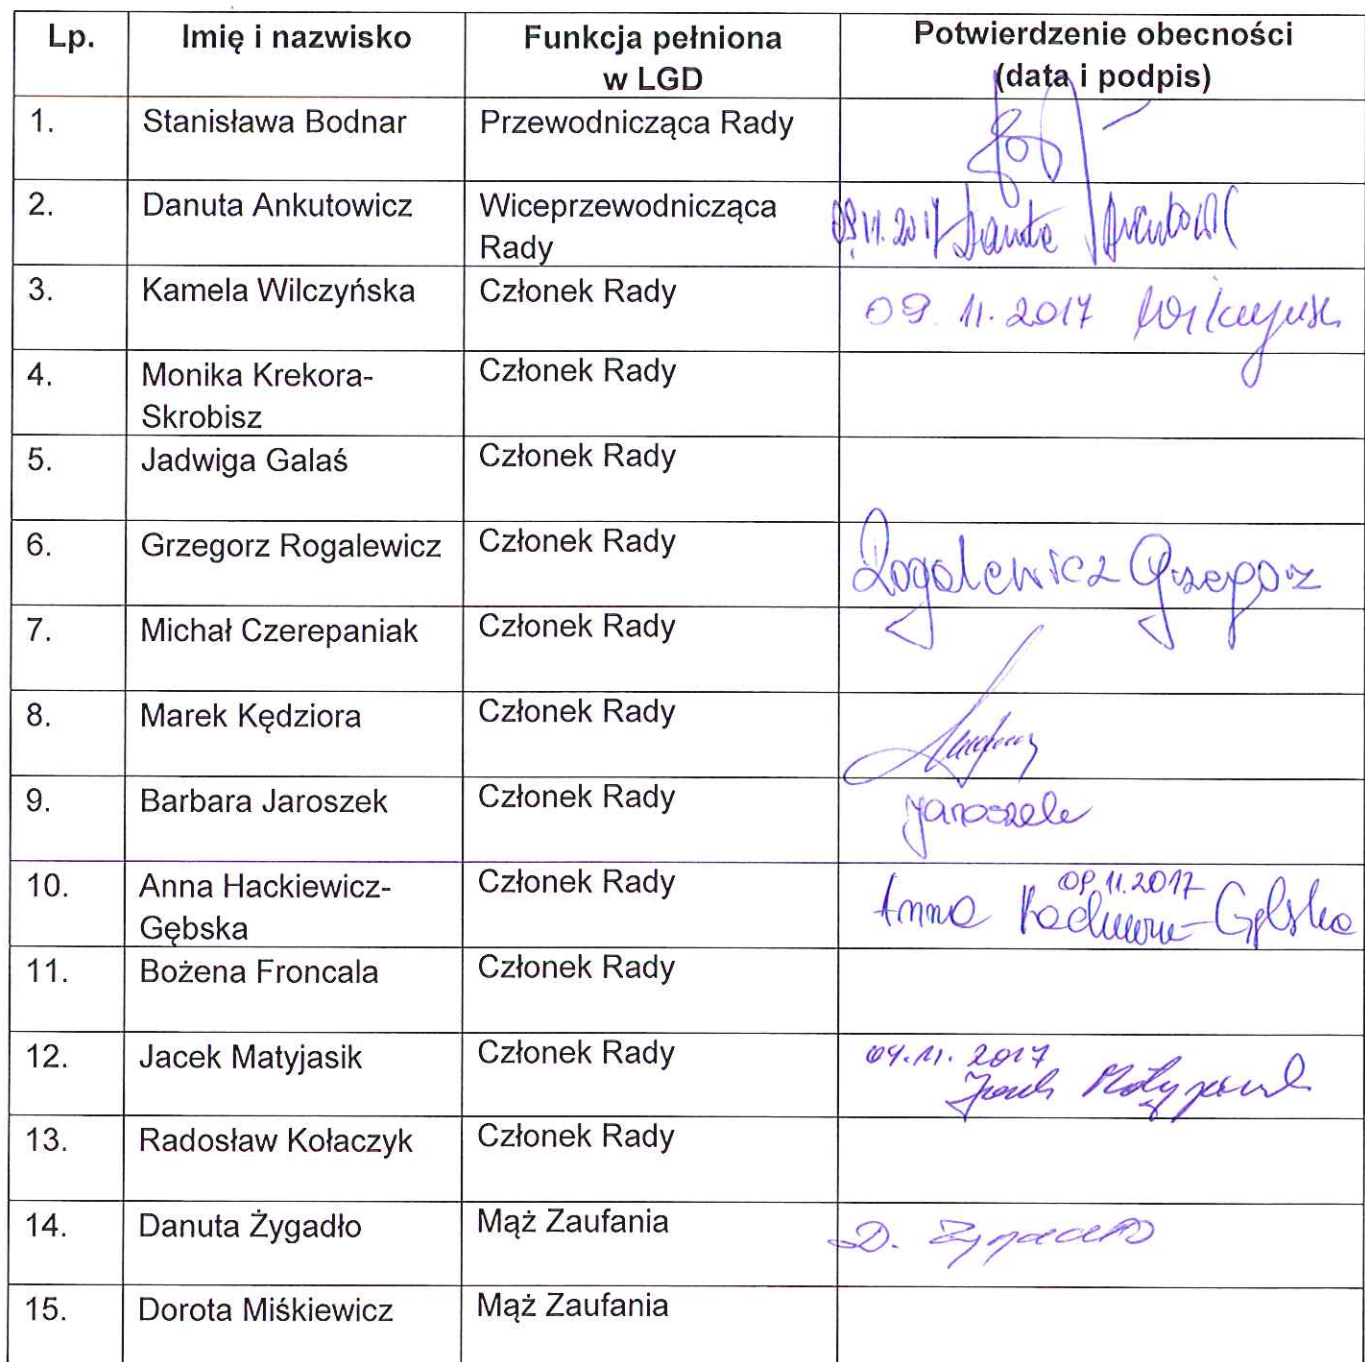 Lp. Imię i nazwisko Funkcja pełniona Potwierdzenie obecności
w LGD (data i podpis)
1. Stanisława Bodnar Przewodnicząca Rady
2. Danuta Ankutowicz Wiceprzewodnicząca 09.11.2017 Danuta
Rady
3. Kamela Wilczyńska Członek Rady 09.11.2017
4. Monika Krekora- Członek Rady
Skrobisz
5. Jadwiga Galaś Członek Rady
6. Grzegorz Rogalewicz Członek Rady Rogalewicz Grzegorz
7. Michał Czerepaniak Członek Rady
8. Marek Kędziora Członek Rady
9. Barbara Jaroszek Członek Rady Jaroszek
10. Anna Hackiewicz- Członek Rady 09.11.2017
Gębska Anna Hackiewicz-Gębska
11. Bożena Froncala Członek Rady
12. Jacek Matyjasik Członek Rady 09.11.2017
Jacek Matyjasik
13. Radosław Kołaczyk Członek Rady
14. Danuta Żygadło Mąż Zaufania D. Żygadło
15. Dorota Miśkiewicz Mąż Zaufania